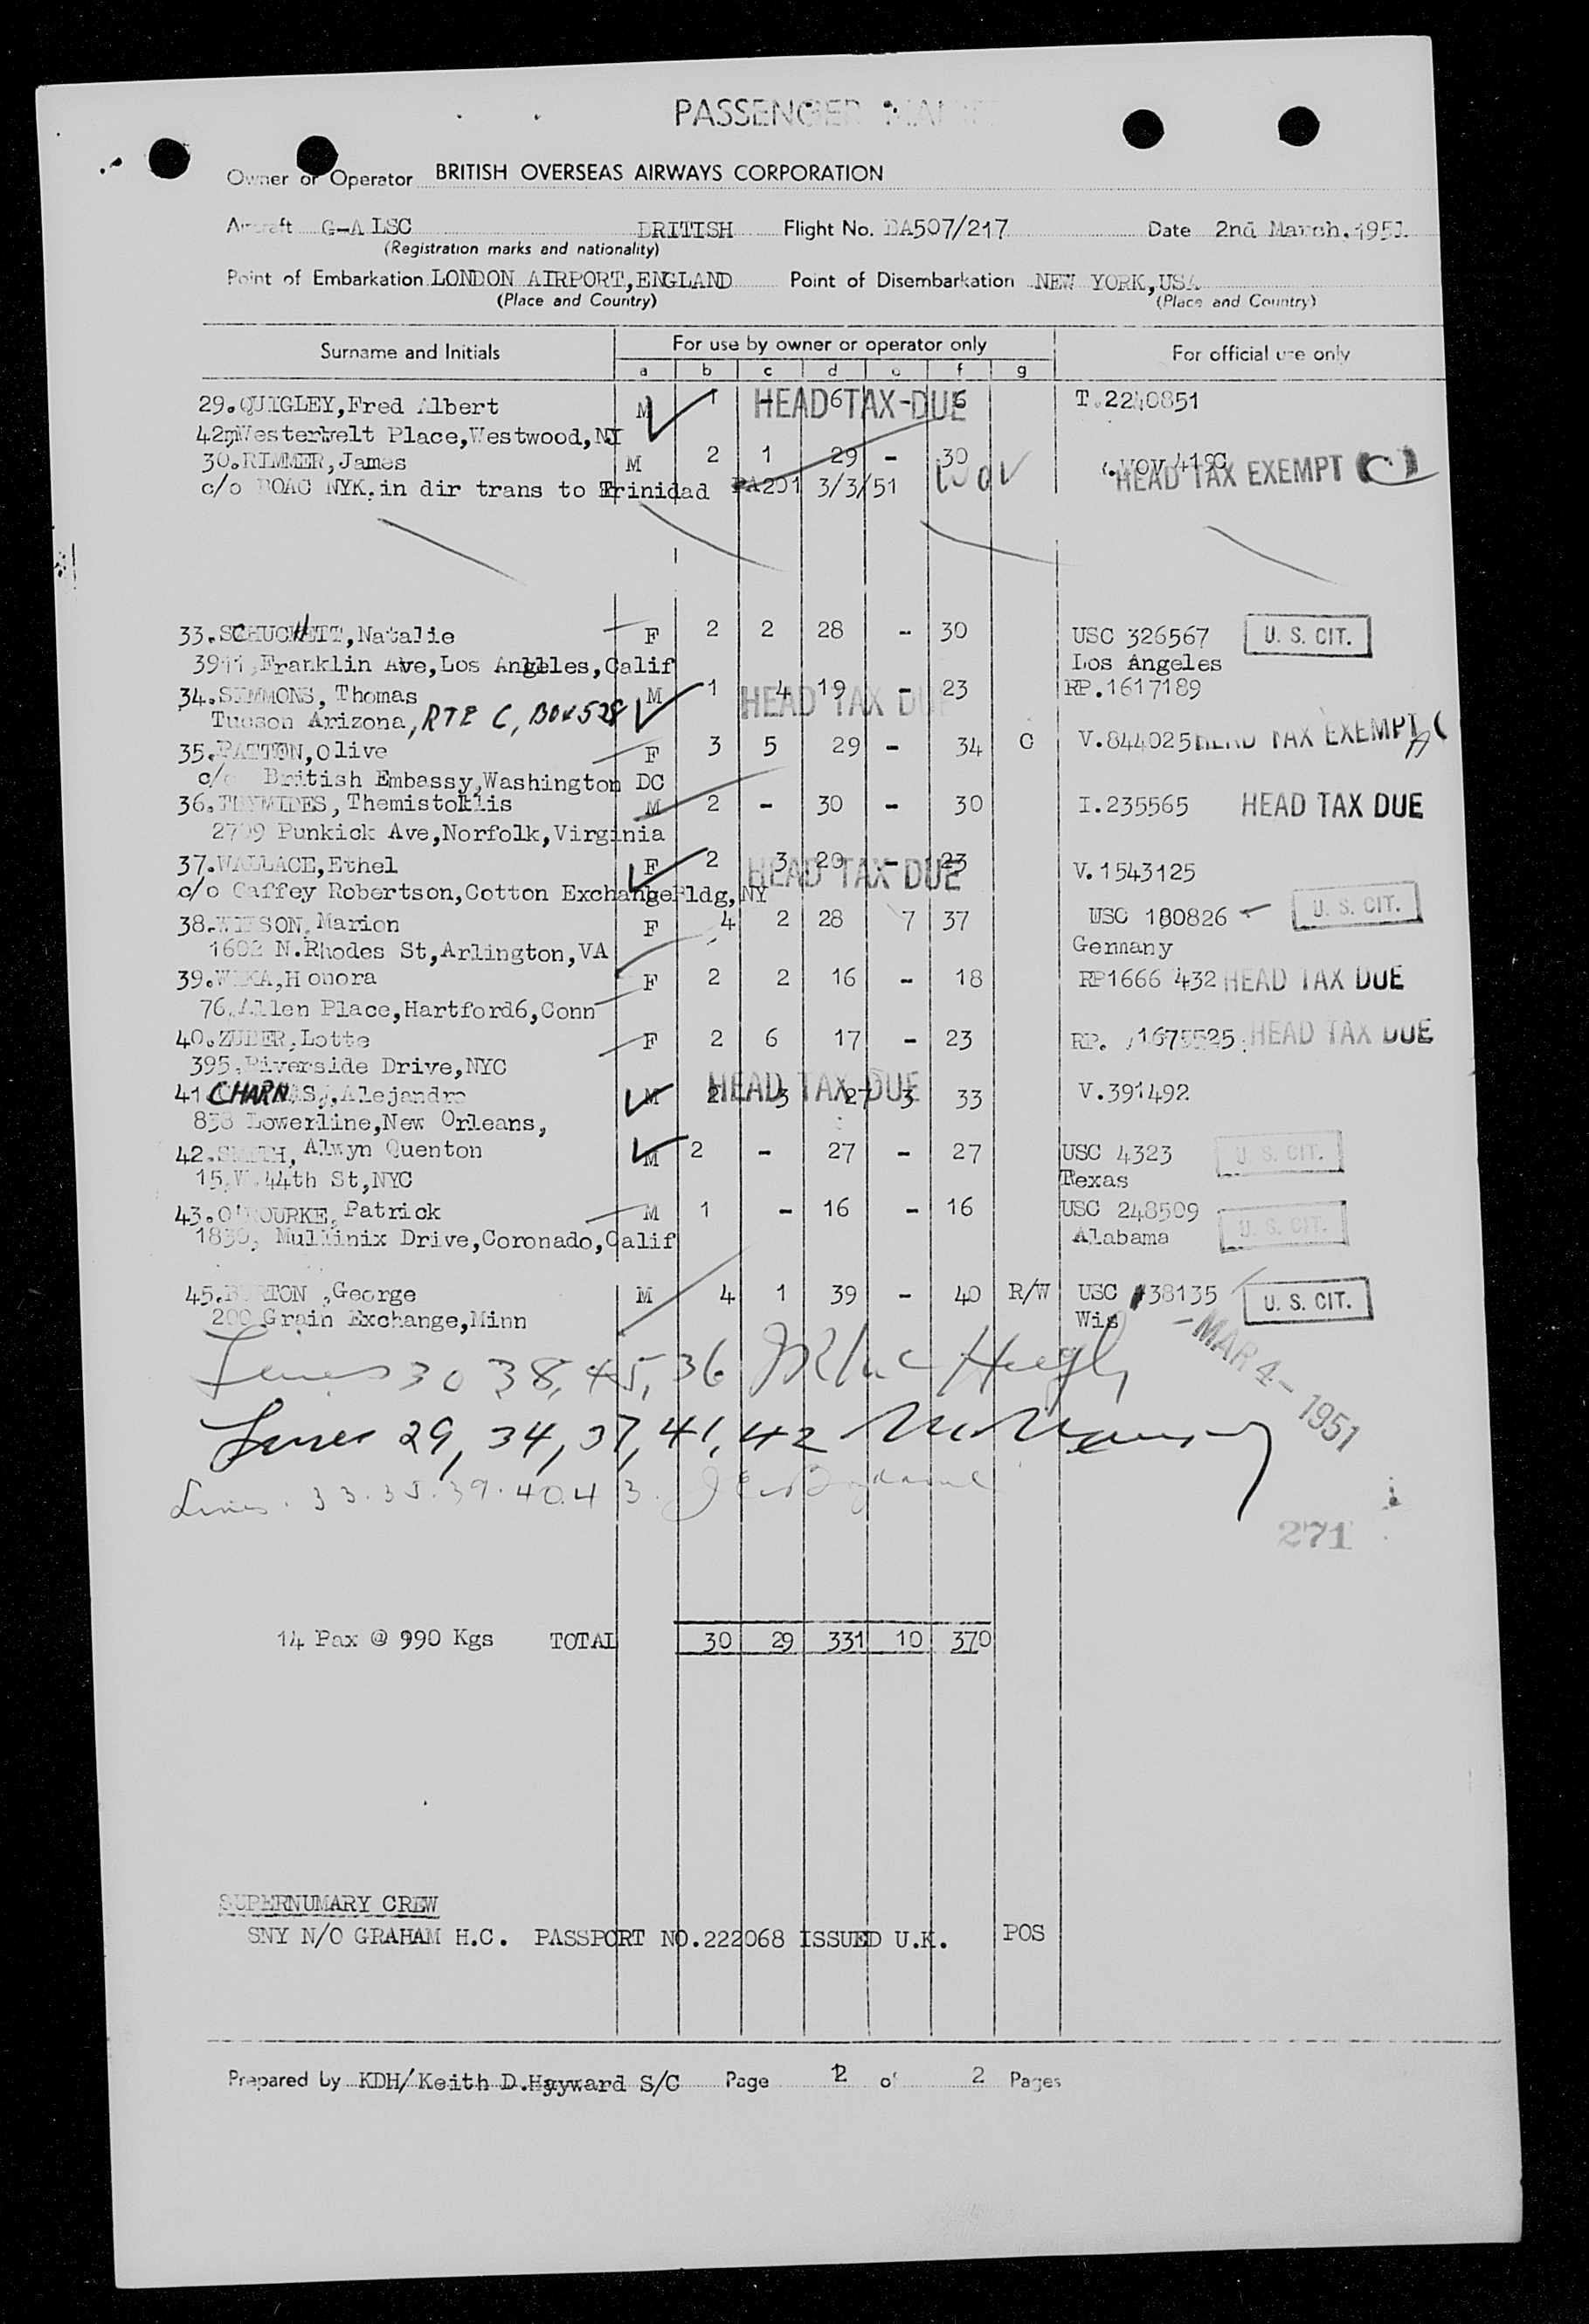 PASSENGER
Owner or Operator BRITISH OVERSEAS AIRWAYS CORPORATION
Aircraft G-ALSC BRITISH Flight No. BA507/217 Date 2nd March, 1951
(Registration marks and nationality)
Point of Embarkation LONDON AIRPORT,ENGLAND Point of Disembarkation NEW YORK,USA
(Place and Country) (Place and Country)
Surname and Initials For use by owner or operator only For official use only
a b c d e f g
29.QUIGLEY,Fred Albert M 1 - 6 - 6 T.2240851
HEAD TAX DUE
42 Westervelt Place,Westwood,NJ
30.RIMMER,James M 2 1 29 - 30
c/o BOAC NYK.in dir trans to Trinidad PA201 3/3/51 HEAD TAX EXEMPT
33.SCHUCHETT,Natalie F 2 2 28 - 30 USC 326567 U. S. CIT.
3911,Franklin Ave,Los Angeles,Calif Los Angeles
34.SIMMONS, Thomas M 1 4 19 - 23 RP.1617189
HEAD TAX DUE
Tucson Arizona, RTE C, BOX 528
35.PATTEN,Olive F 3 5 29 - 34 C V.844025 HEAD TAX EXEMPT
c/o British Embassy,Washington DC
36. Themistoklis M 2 - 30 - 30 I.235565 HEAD TAX DUE
2709 Punkick Ave,Norfolk,Virginia
37.WALLACE,Ethel F 2 3 20 - 23 V.1543125
HEAD TAX DUE
c/o Caffey Robertson,Cotton ExchangeBldg,NY
38.WILSON,Marion F 4 2 28 7 37 USC 180826 U. S. CIT.
1602 N.Rhodes St,Arlington,VA Germany
39. Honora F 2 2 16 - 18 RP1666 432 HEAD TAX DUE
76,Allen Place,Hartford6,Conn
40.ZUBER,Lotte F 2 6 17 - 23 RP. 1675525 HEAD TAX DUE
395,Riverside Drive,NYC
41 CHARNAS,Alejandro M 2 3 27 3 33 V.391492
HEAD TAX DUE
838 Lowerline,New Orleans,
42.SMITH, Alwyn Quenton M 2 - 27 - 27 USC 4323 U. S. CIT.
15,W.44th St,NYC Texas
43.O'ROURKE, Patrick M 1 - 16 - 16 USC 248509 U. S. CIT.
1830, Mullinix Drive,Coronado,Calif Alabama
45.BURTON ,George M 4 1 39 - 40 R/W USC #38135 U. S. CIT.
200 Grain Exchange,Minn Wis
-MAR 4-1951
Lines 30 38, 45, 36
Lines 29, 34, 37, 41, 42
Lines. 33.35.39.40.43.
271
14 Pax @ 990 Kgs TOTAL 30 29 331 10 370
SUPERNUMARY CREW
SNY N/O GRAHAM H.C. PASSPORT NO.222068 ISSUED U.K. POS
Prepared by KDH/Keith D.Hayward S/C Page 2 of 2 Pages